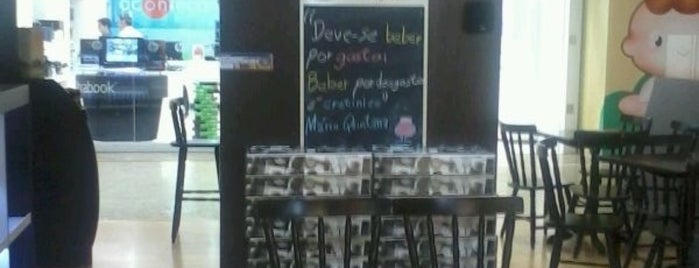 acontece
ebook
"Deve-se beber
por gosto;
Beber por desgosto
é cretinice"
Mário Quintana